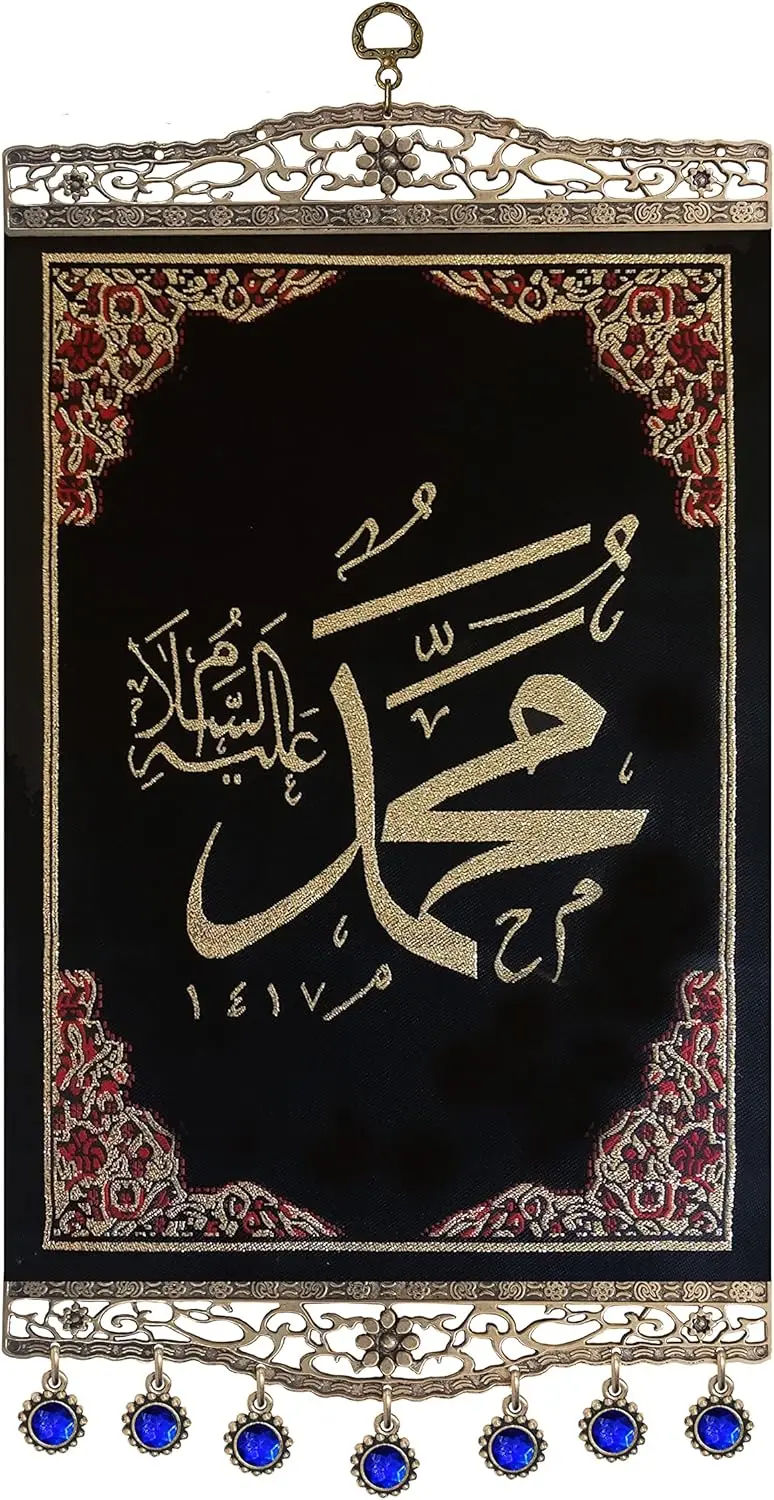 مُحَمَّد
عَلَيهِ السَّلَامُ
١٤١٧